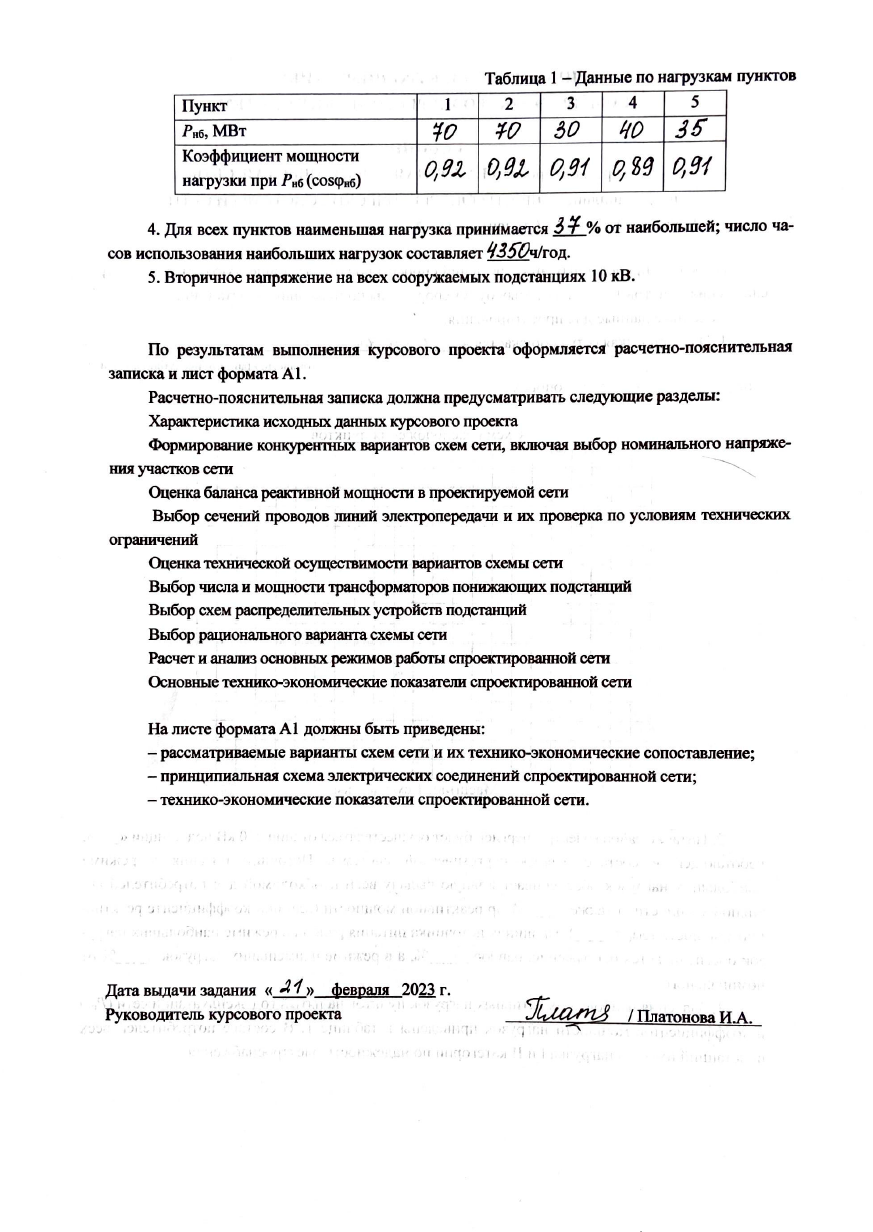 Таблица 1 – Данные по нагрузкам пунктов
Пункт 1 2 3 4 5
Pнб, МВт 70 70 30 40 35
Коэффициент мощности
нагрузки при Pнб (cosφнб) 0,92 0,92 0,91 0,89 0,91
4. Для всех пунктов наименьшая нагрузка принимается 37 % от наибольшей; число ча-
сов использования наибольших нагрузок составляет 4350 ч/год.
5. Вторичное напряжение на всех сооружаемых подстанциях 10 кВ.
По результатам выполнения курсового проекта оформляется расчетно-пояснительная
записка и лист формата А1.
Расчетно-пояснительная записка должна предусматривать следующие разделы:
Характеристика исходных данных курсового проекта
Формирование конкурентных вариантов схем сети, включая выбор номинального напряже-
ния участков сети
Оценка баланса реактивной мощности в проектируемой сети
Выбор сечений проводов линий электропередачи и их проверка по условиям технических
ограничений
Оценка технической осуществимости вариантов схемы сети
Выбор числа и мощности трансформаторов понижающих подстанций
Выбор схем распределительных устройств подстанций
Выбор рационального варианта схемы сети
Расчет и анализ основных режимов работы спроектированной сети
Основные технико-экономические показатели спроектированной сети
На листе формата А1 должны быть приведены:
– рассматриваемые варианты схем сети и их технико-экономические сопоставление;
– принципиальная схема электрических соединений спроектированной сети;
– технико-экономические показатели спроектированной сети.
Дата выдачи задания « 21 » февраля 2023 г.
Руководитель курсового проекта / Платонова И.А.